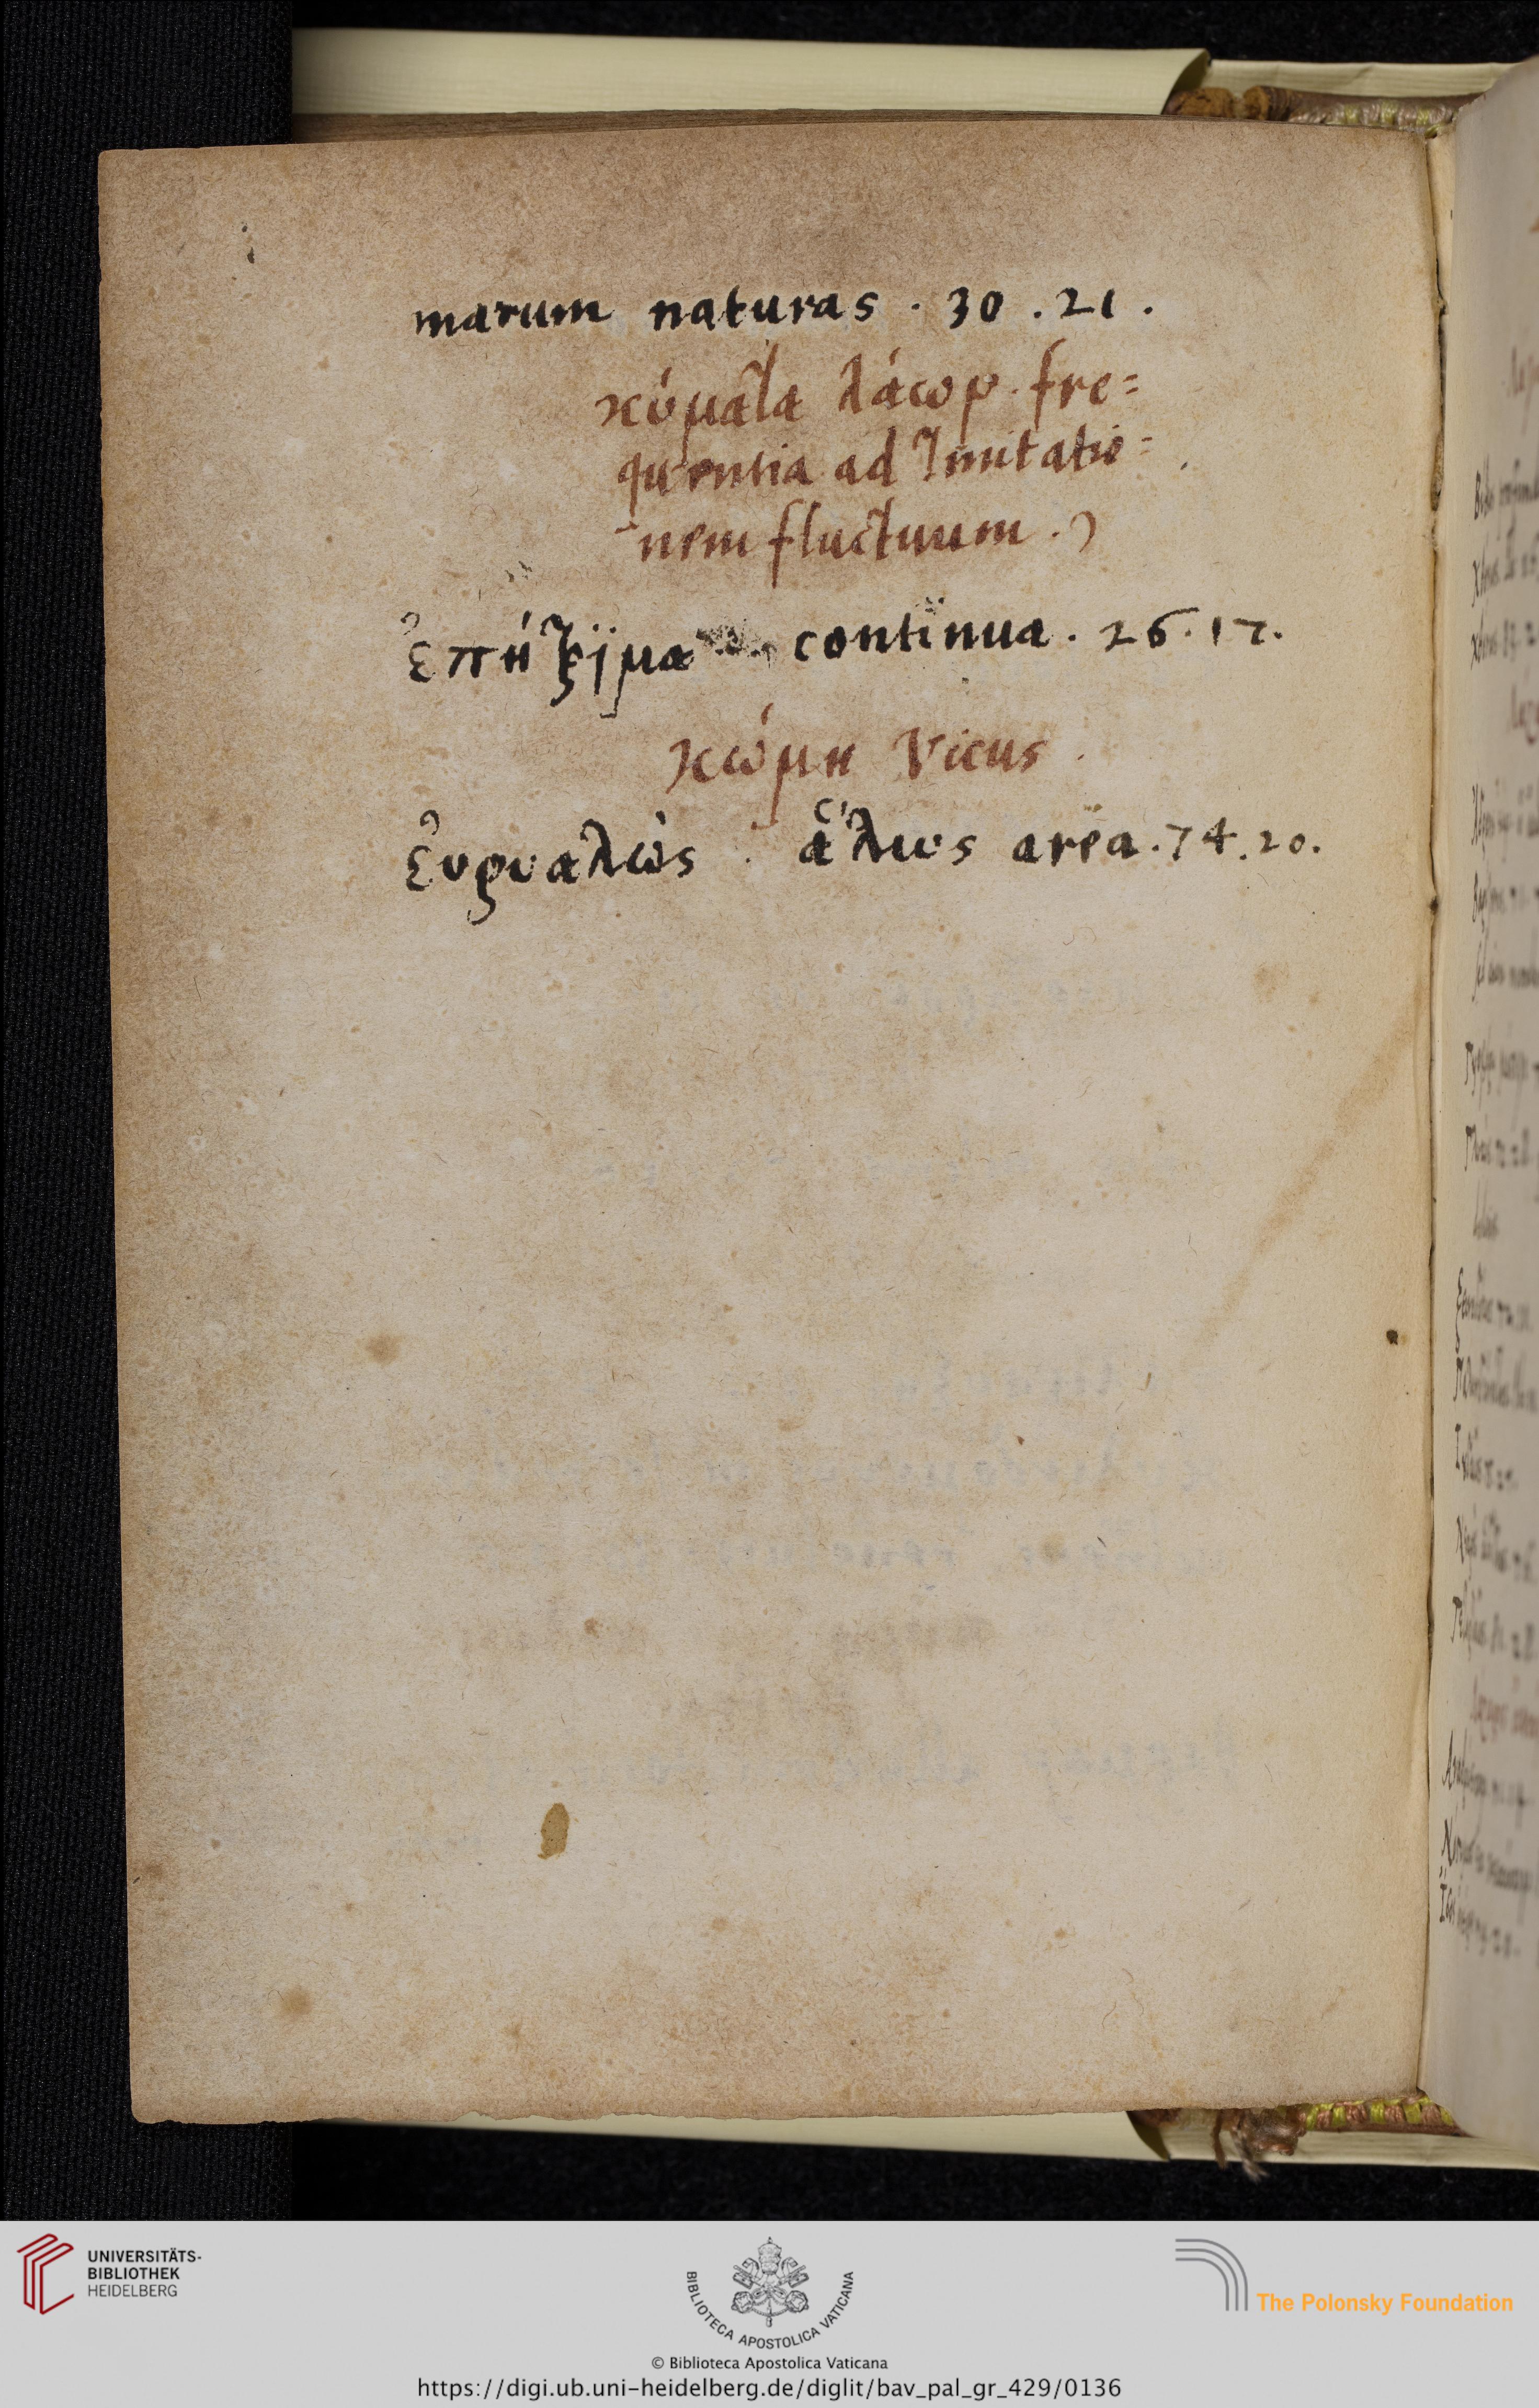 marum naturas . 30 . 21 .
κύματα λάωρ . fre=
quentia ad Imitatio=
nem fluctuum .
continua . 26 . 17 .
κώμη Vicus .
ἐυρυαλὼς . ἅλως area . 74 . 20 .
UNIVERSITÄTS-
BIBLIOTHEK
HEIDELBERG
BIBLIOTECA APOSTOLICA VATICANA
The Polonsky Foundation
© Biblioteca Apostolica Vaticana
https://digi.ub.uni-heidelberg.de/diglit/bav_pal_gr_429/0136